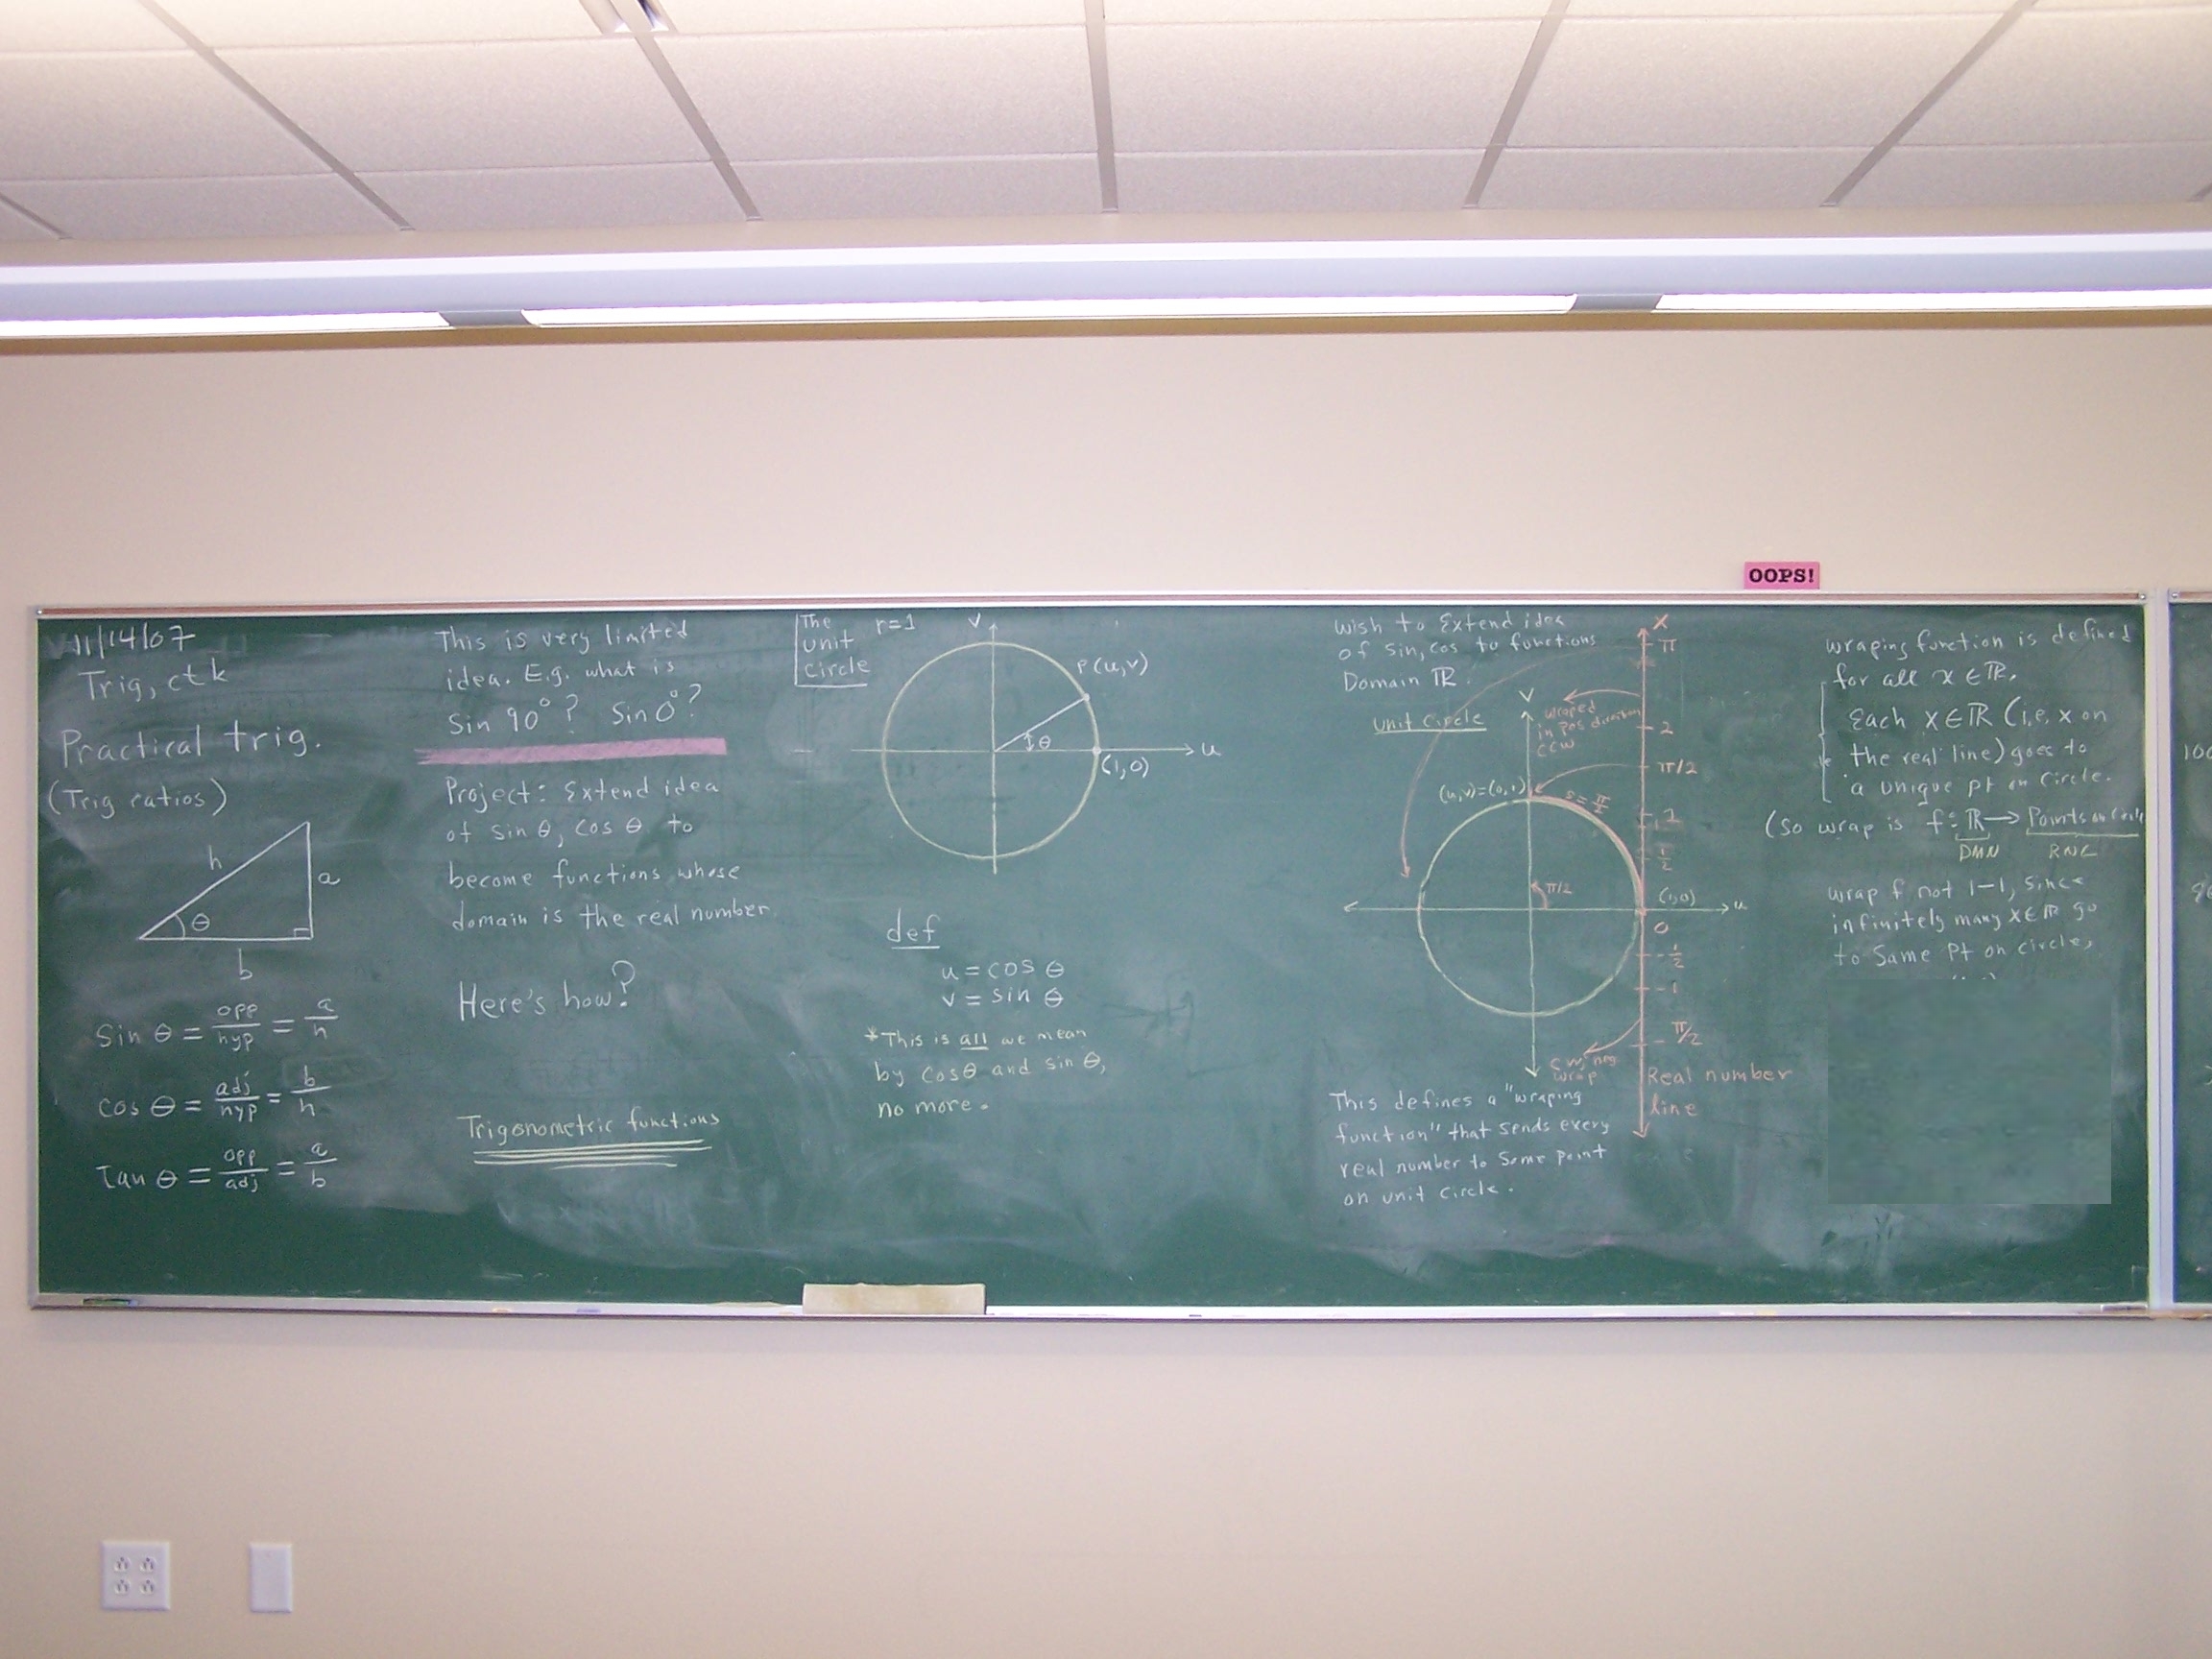 OOPS!
11/14/07
Trig, ctk
Practical trig.
(Trig ratios)
h
a
θ
b
Sin θ = opp/hyp = a/h
cos θ = adj/hyp = b/h
Tan θ = opp/adj = a/b
This is very limited
idea. E.g. what is
Sin 90°? Sin 0°?
Project: Extend idea
of sin θ, cos θ to
become functions whose
domain is the real number
Here's how?
Trigonometric functions
The
unit
circle
r=1
v
P(u,v)
θ
u
(1,0)
def
u = cos θ
v = sin θ
*This is all we mean
by cosθ and sin θ,
no more.
wish to Extend idea
of sin, cos to functions
Domain ℝ.
unit circle
v
wraped
in pos direction
CCW
(u,v)=(0,1)
s = π/2
π/2
(1,0)
u
x
π
2
π/2
1
1/2
0
-1/2
-1
-π/2
CW, neg
wrap
Real number
line
This defines a "wraping
function" that sends every
real number to some point
on unit circle.
wraping function is defined
for all x ∈ ℝ.
Each x ∈ ℝ (i.e. x on
the real line) goes to
a unique pt on circle.
(so wrap is f: ℝ → Points on circle
DMN RNG
wrap f not 1-1, since
infinitely many x∈ℝ go
to same pt on circle,